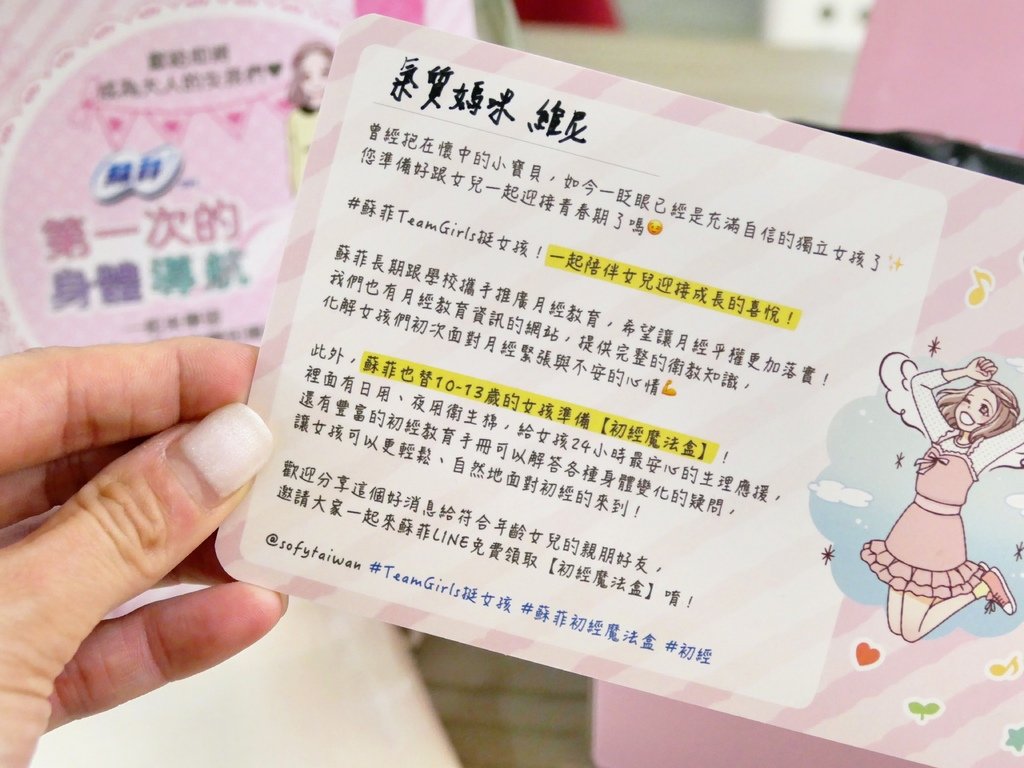 獻給即將
成為大人的女孩們♥
蘇菲
第一次的
身體導航
氣質媽咪 維尼
曾經抱在懷中的小寶貝，如今一眨眼已經是充滿自信的獨立女孩了✨
您準備好跟女兒一起迎接青春期了嗎😉
#蘇菲TeamGirls挺女孩！一起陪伴女兒迎接成長的喜悅！
蘇菲長期跟學校攜手推廣月經教育，希望讓月經平權更加落實！
我們也有月經教育資訊的網站，提供完整的衛教知識，
化解女孩們初次面對月經緊張與不安的心情💪
此外，蘇菲也替10-13歲的女孩準備【初經魔法盒】！
裡面有日用、夜用衛生棉，給女孩24小時最安心的生理應援，
還有豐富的初經教育手冊可以解答各種身體變化的疑問，
讓女孩可以更輕鬆、自然地面對初經的來到！
歡迎分享這個好消息給符合年齡女兒的親朋好友，
邀請大家一起來蘇菲LINE免費領取【初經魔法盒】唷！
@sofytaiwan #TeamGirls挺女孩 #蘇菲初經魔法盒 #初經